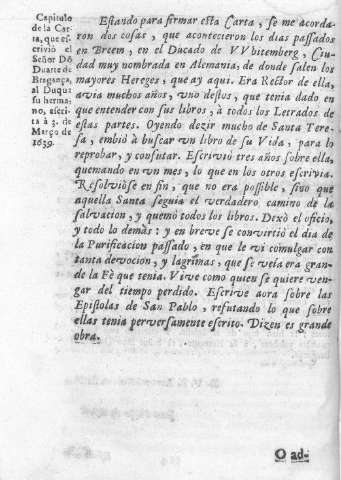 Capitulo
de la Car-
ta, que es-
crivió el
Señor Dõ
Duarte de
Bragança
al Duque
su herma-
no, escri-
ta à 3. de
Março de
1639.
Estando para firmar esta Carta, se me acorda-
ron dos cosas, que acontecieron los dias passados
en Breem, en el Ducado de VVbitemberg, Ciu-
dad muy nombrada en Alemania; de donde salen los
mayores Hereges, que ay aqui. Era Rector de ella,
avia muchos años, uno destos, que tenia dado en
que entender con sus libros, à todos los Letrados de
estas partes. Oyendo dezir mucho de Santa Tere-
sa, embiò à buscar un libro de su Vida, para lo
reprobar, y confutar. Escriviò tres años sobre ella,
quemando en un mes, lo que en los otros escrivia.
Resolviòse en fin, que no era possible, sino que
aquella Santa seguia el verdadero camino de la
salvacion, y quemò todos los libros. Dexò el oficio,
y todo lo demàs: y en breve se convirtiò el dia de
la Purificacion passado, en que le vi comulgar con
tanta devocion, y lagrimas, que se veia era gran-
de la Fè que tenia. Vive como quien se quiere ven-
gar del tiempo perdido. Escrive aora sobre las
Epistolas de San Pablo, refutando lo que sobre
ellas tenia perversamente escrito. Dizen es grande
obra.
O ad-